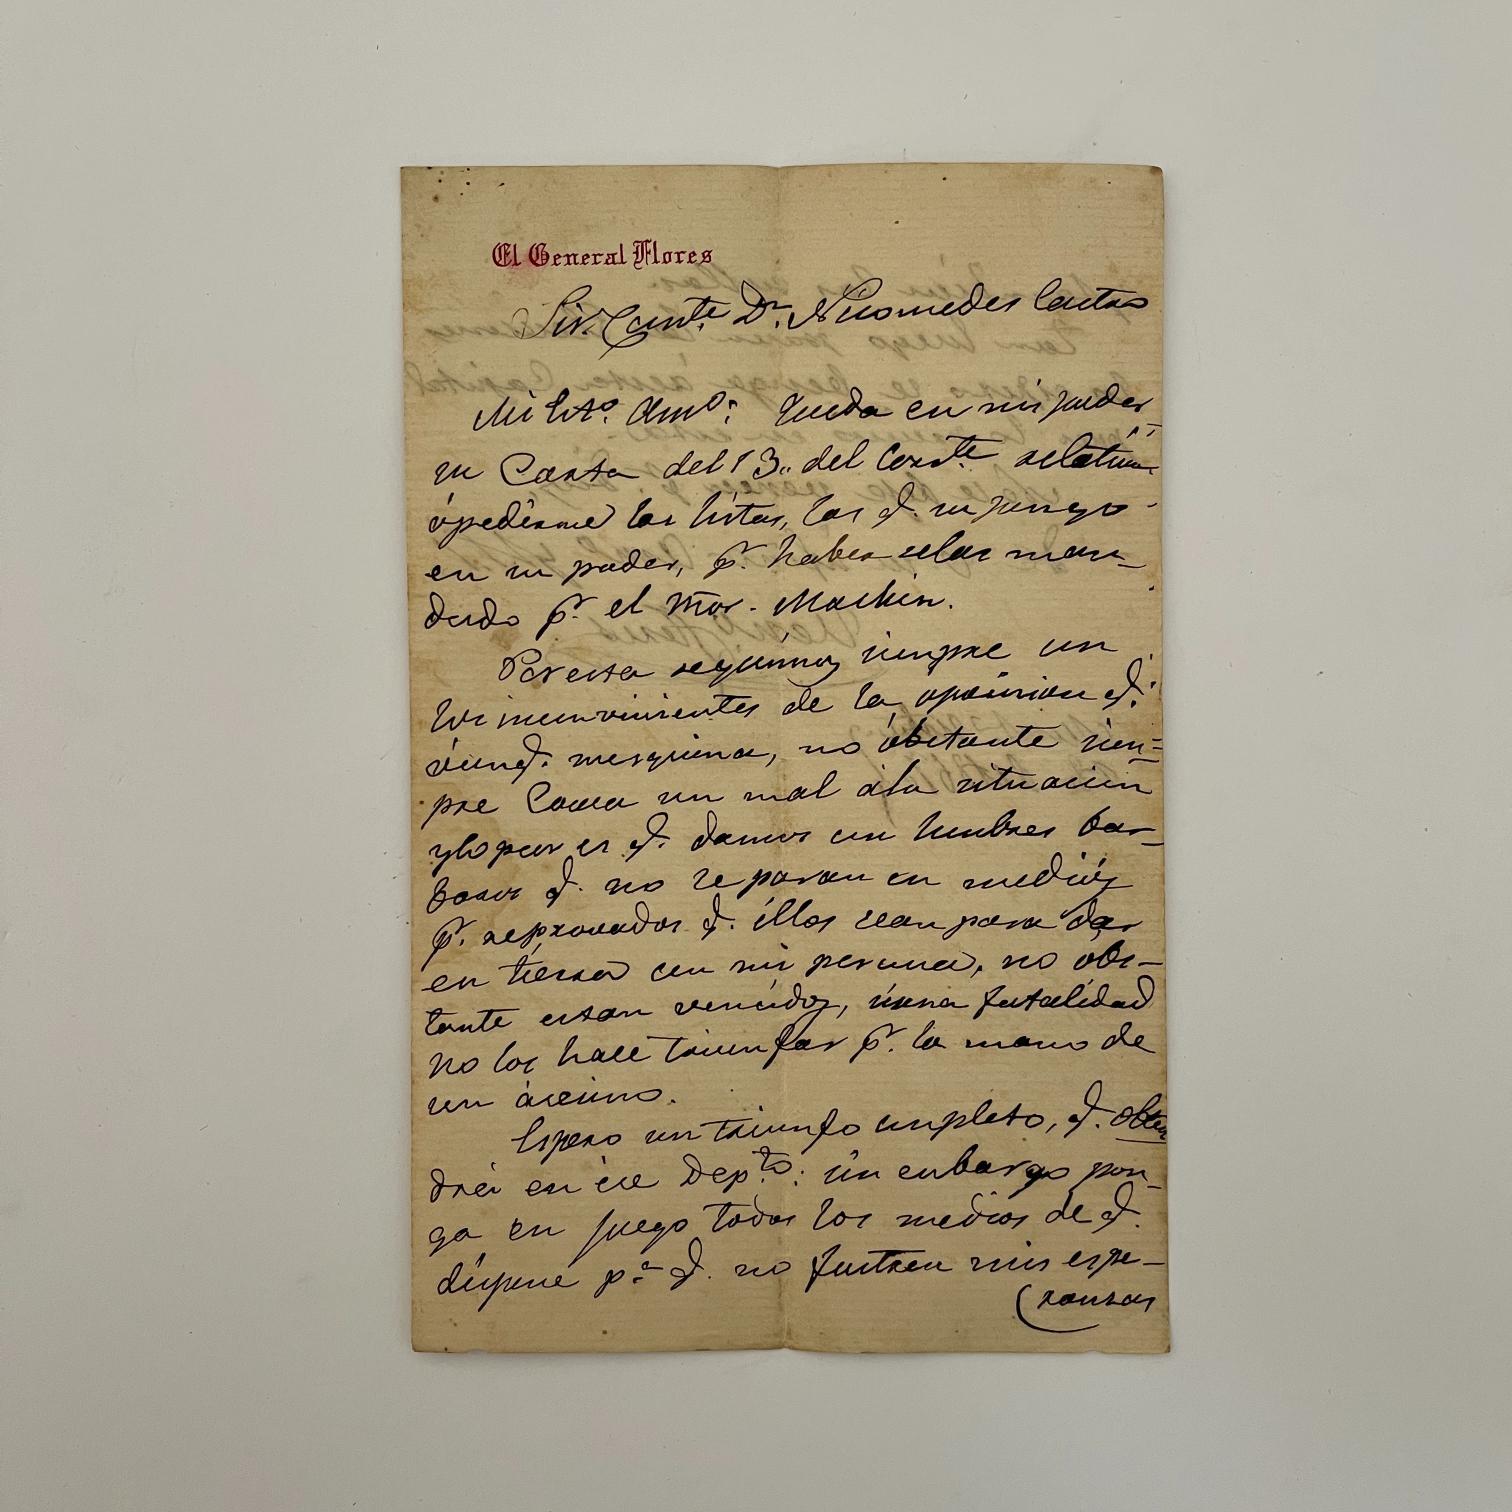 El General Flores
Sr. Comte. Dn. Nicomedes Castro
Mi Esto. Amo: Queda en mi poder
su Carta del 13,, del Corrte. relativa
ápedirme las listas, las q. supongo
en su poder, pr. haberselas man-
dado pr. el Mor. Machin.
Por esta seguimos siempre con
los inconvenientes de la oposision q.
áunq. mesquina, no óbstante siem=
pre Causa un mal ála situacion
yló peor es q. damos con hombres bar-
baros q. no se paran en medios
pr. reprovados q. éllos sean para dar
en tierra con mi persona, no obs-
tante estan vencidos, si una fatalidad
no los hace triunfar pr. la mano de
un ásesino.
Espero un triunfo completo, q. obten
dré en ese Depto: sin embargo pon-
ga en juego todos los medios de q.
dispone pa. q. no fustren mis espe-
ransas